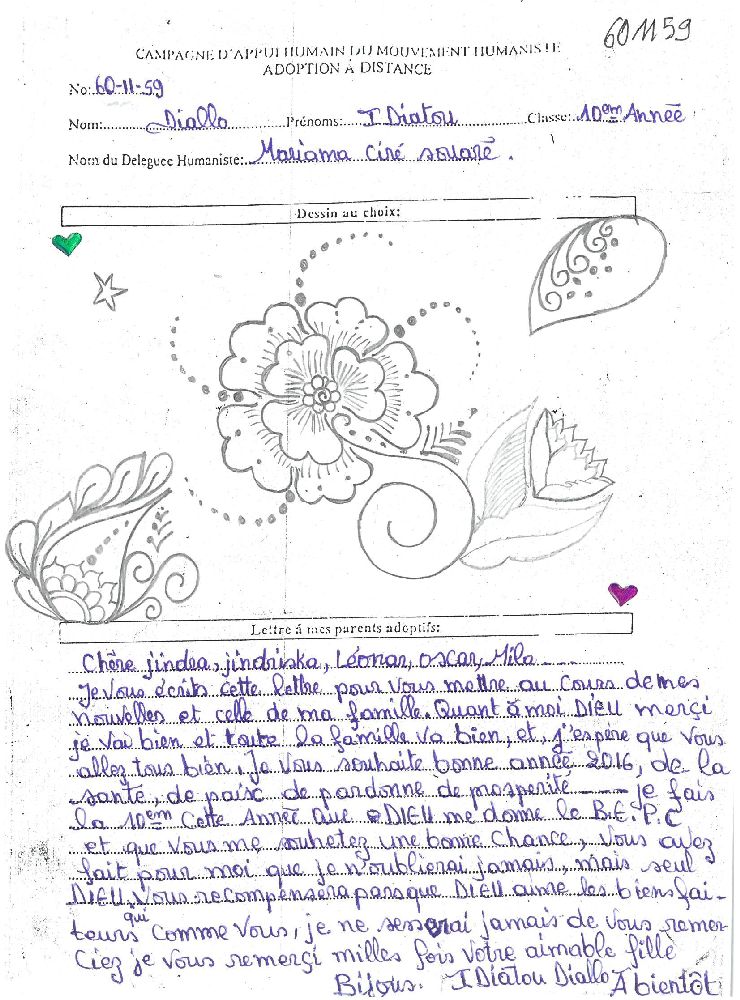 601159
CAMPAGNE D'APPUI HUMAIN DU MOUVEMENT HUMANISTE
ADOPTION À DISTANCE
No: 60-11-59
Nom: Diallo Prénoms: I Diatou Classe: 10em Année
Nom du Deleguee Humaniste: Mariama Ciré souaré.
Dessin au choix:
Lettre á mes parents adoptifs:
Chère jindra, jindriska, Léonar, oscar, Mila
Je vous écrits cette lettre pour vous mettre au cours de mes
nouvelles et celle de ma famille. Quant à moi DIEU merçi
je vai bien et toute la famille va bien, et, j'espère que vous
allez tous bien, Je vous souhaite bonne année 2016, de la
santé, de paix de pardonne de prosperité je fais
la 10em Cette Année que DIEU me donne le B.E.P.C
et que vous me souhetez une bonne chance, vous avez
fait pour moi que je n'oublierai jamais, mais seul
DIEU vous recompensera parsque DIEU aime les biensfai-
teurs qui comme vous, je ne sesserai jamais de vous remer-
Ciez je vous remerçi milles fois votre aimable fille
Bijous. I Diatou Diallo A bientôt